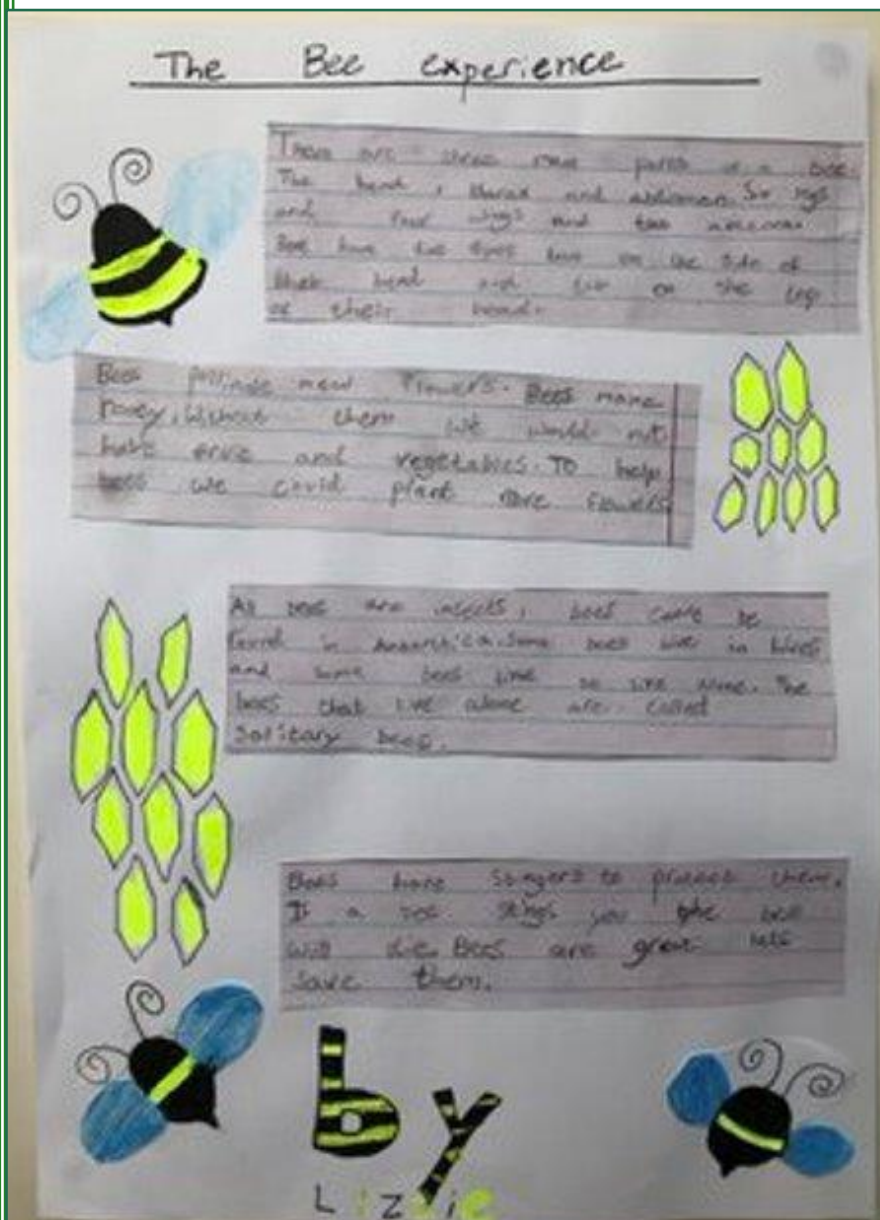 The Bee experience
There are three main parts of a bee.
The head, and abdomen. Six legs
and four wings and two
Bee have five eyes two on the side of
their head and on the top
of their head.
Bees flowers. Bees make
honey, without them we would not
have and vegetables. To help
bees we could plant more flowers
All bees are insects, bees be
found in some bees live in hives
and some bees live alone. The
bees that live alone are called
Solitary bees.
Bees have to protect them.
If a bee stings you the bee
will die. Bees are great lets
save them.
by
Lizzie